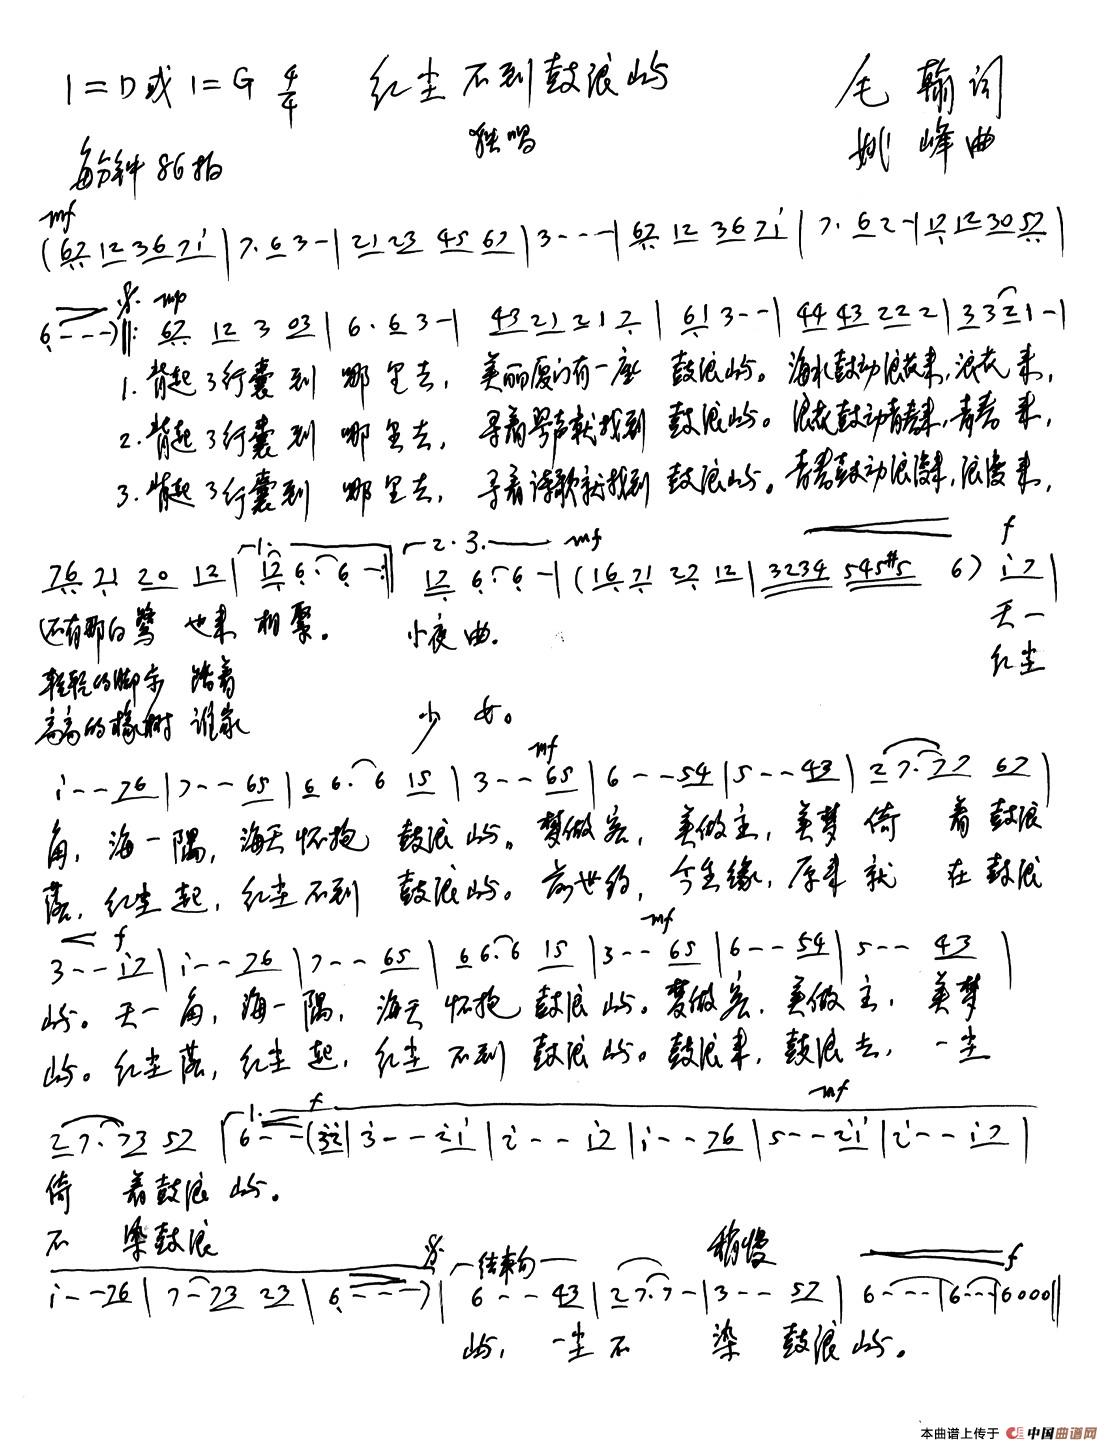 1=D或1=G 4/4 红尘不到鼓浪屿 毛翰词
独唱 姚峰曲
每分钟86拍
mf
(67 12 36 7i | 7· 6 3 - | 21 23 45 67 | 3 - - - | 67 12 36 7i | 7· 6 2 - | 17 12 30 57 |
mp
6 - - -) ‖: 67 12 3 03 | 6· 6 3 - | 43 21 21 7 | 61 3 - - | 44 43 22 2 | 33 21 - |
1.背起了行囊到哪里去，美丽厦门有一座鼓浪屿。海水鼓动浪花来，浪花来，
2.背起了行囊到哪里去，寻着琴声就找到鼓浪屿。浪花鼓动青春来，青春来，
3.背起了行囊到哪里去，寻着诗歌就找到鼓浪屿。青春鼓动浪漫来，浪漫来，
1. 2.3. mf f
76 71 20 12 | 17 6· 6 - :‖ 17 6· 6 - | (16 71 27 12 | 3234 545#5 6) i7 |
还有那白鹭也来相聚。小夜曲。天一
轻轻的脚步踏着 红尘
高高的橡树谁家 少女。
mf
i - - 76 | 7 - - 65 | 6 6· 6 15 | 3 - - 65 | 6 - - 54 | 5 - - 43 | 27· 77 67 |
角，海一隅，海天怀抱鼓浪屿。梦做客，美做主，美梦倚着鼓浪
落，红尘起，红尘不到鼓浪屿。前世约，今生缘，原来就在鼓浪
f mf
3 - - i7 | i - - 76 | 7 - - 65 | 6 6· 6 15 | 3 - - 65 | 6 - - 54 | 5 - - 43 |
屿。天一角，海一隅，海天怀抱鼓浪屿。梦做客，美做主，美梦
屿。红尘落，红尘起，红尘不到鼓浪屿。鼓浪来，鼓浪去，一尘
1. f mf
27· 73 57 | 6 - - (32 | 3 - - 2i | 2 - - i7 | i - - 76 | 5 - - 2i | 2 - - i7 |
倚着鼓浪屿。
不染鼓浪
结束句 稍慢 f
i - - 76 | 7 - 73 27 | 6 - - -) | 6 - - 43 | 27· 7 - | 3 - - 57 | 6 - - - | 6 - - - | 6000 ‖
屿，一尘不染鼓浪屿。
本曲谱上传于 中国曲谱网